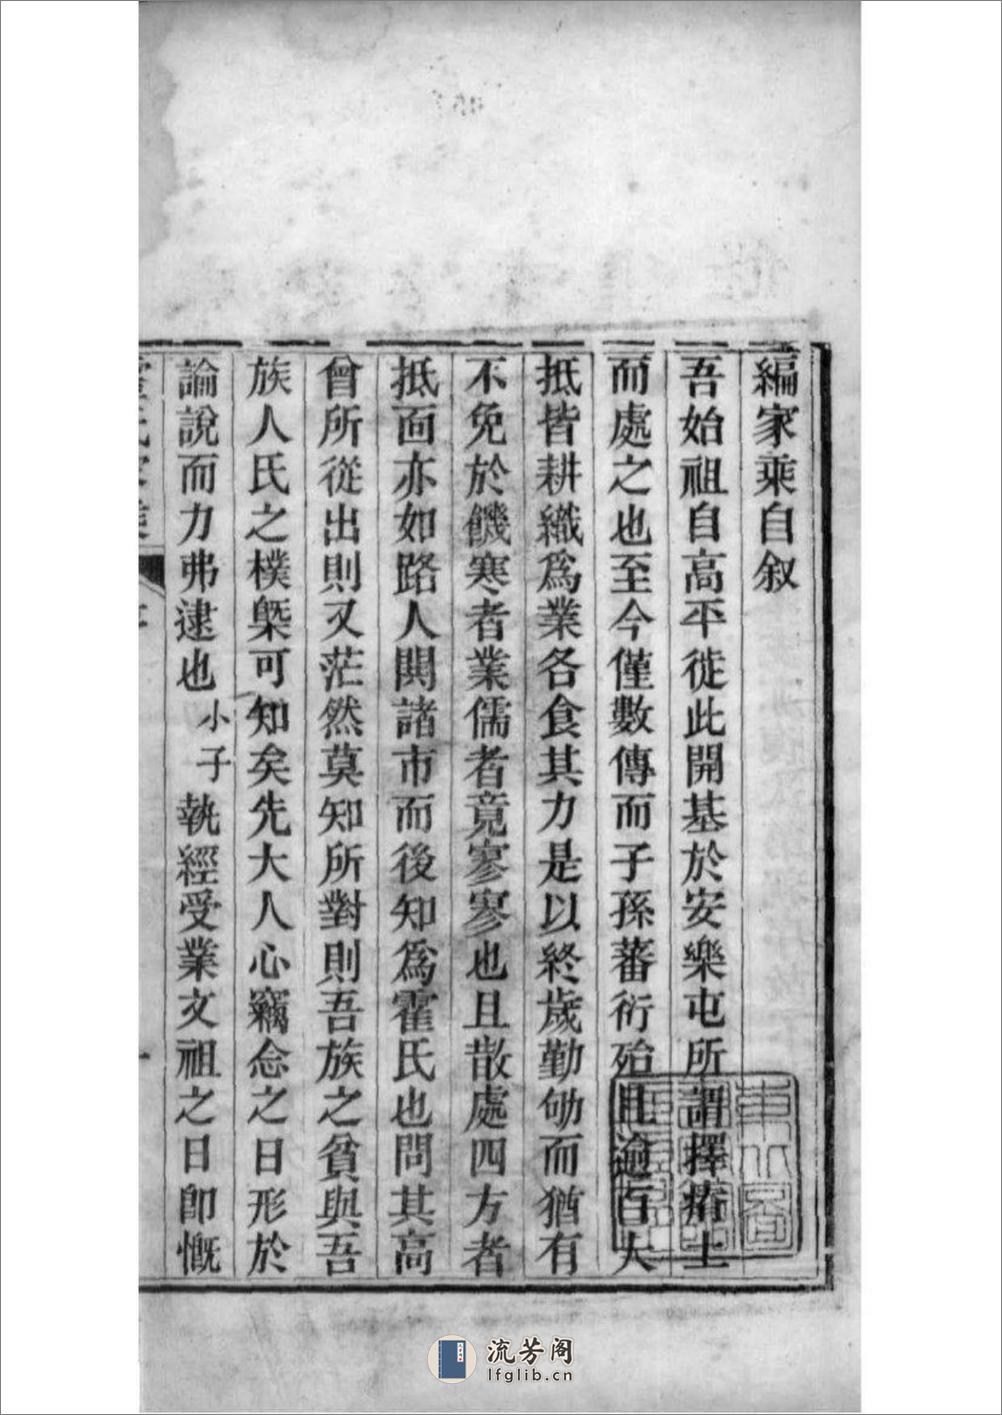 編家乘自叙
吾始祖自高平徙此開基於安樂屯所謂擇瘠土
而處之也至今僅數傳而子孫蕃衍殆且逾百大
抵皆耕織爲業各食其力是以終歲勤劬而猶有
不免於饑寒者業儒者竟寥寥也且散處四方者
抵面亦如路人閧諸市而後知爲霍氏也問其高
曾所從出則又茫然莫知所對則吾族之貧與吾
族人氏之樸槩可知矣先大人心竊念之日形於
論說而力弗逮也小子執經受業文祖之日卽慨
霍氏家乘
流芳阁
lfglib.cn